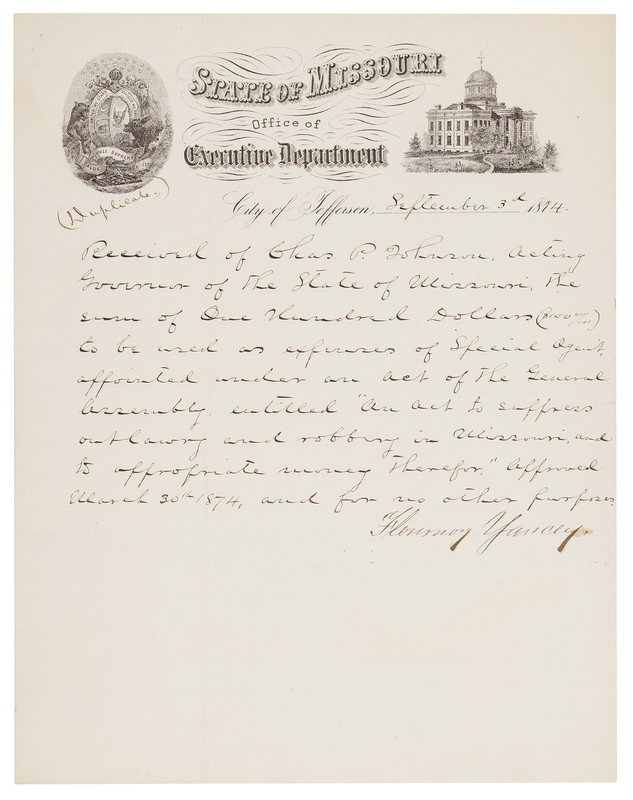 STATE OF MISSOURI
Office of
Executive Department
(Duplicate.)
City of Jefferson, September 3d 1874.
Received of Chas. P. Johnson, Acting
Governor of the State of Missouri, the
sum of One Hundred Dollars ($100
to be used as expenses of Special Agent,
appointed under an act of the General
Assembly, entitled "An act to suppress
outlawry and robbery in Missouri, and
to appropriate money therefor," Approved
March 30th 1874, and for no other purposes.
Flournoy Yancey.